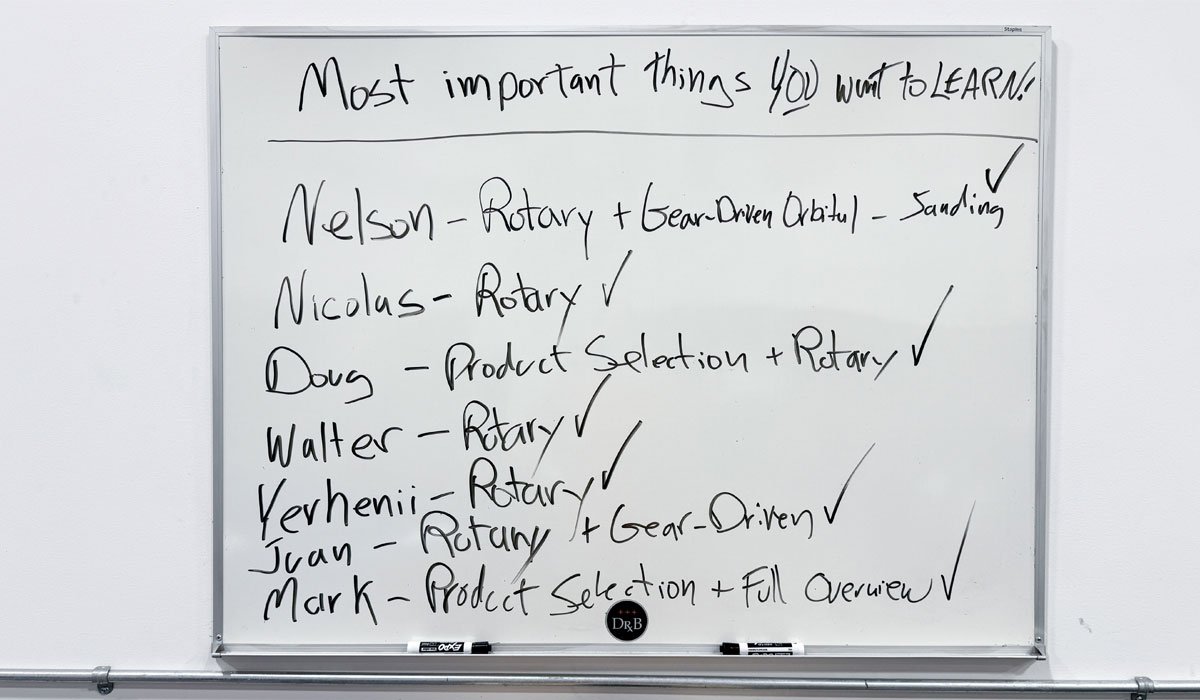 Staples
Most important things YOU want to LEARN!
Nelson - Rotary + Gear-Driven Orbital - Sanding ✓
Nicolas - Rotary ✓
Doug - Product Selection + Rotary ✓
Walter - Rotary ✓
Yerhenii - Rotary ✓
Juan - Rotary + Gear-Driven ✓
Mark - Product Selection + Full Overview ✓
DRB
EXPO